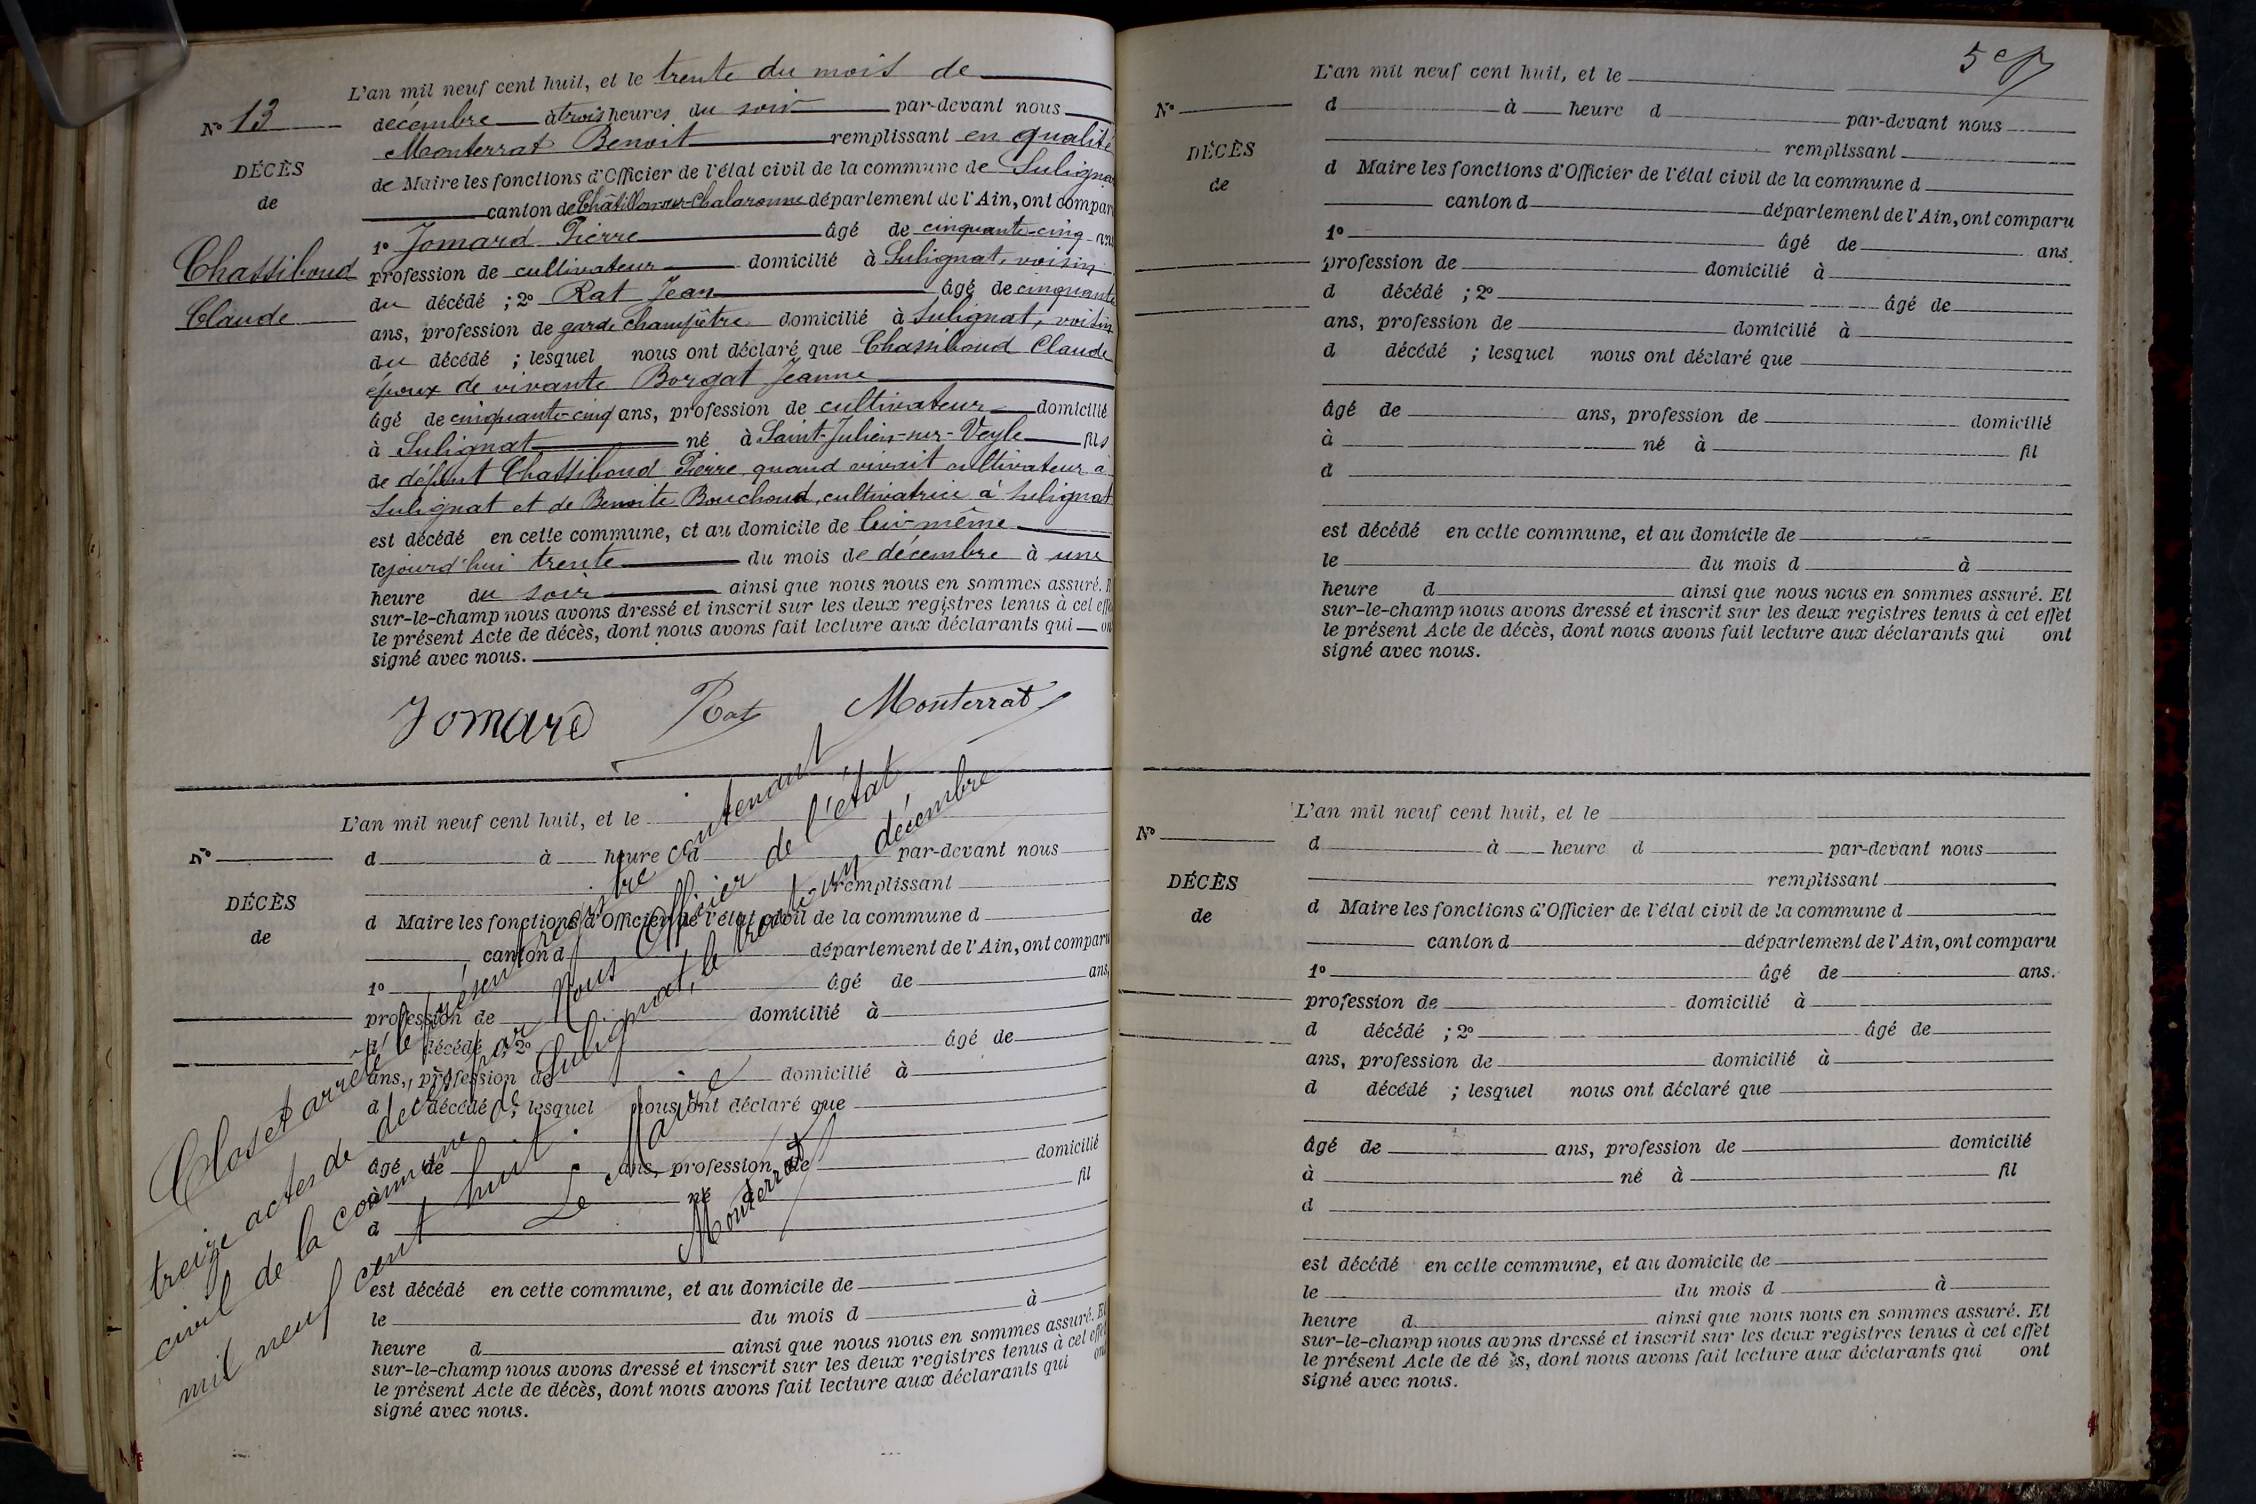 L'an mil neuf cent huit, et le trente du mois de
N° 13
décembre à trois heures du soir par-devant nous
Monterrat Benoit remplissant en qualité
DÉCÈS
de Maire les fonctions d'Officier de l'état civil de la commune de Sulignat
de
canton de Châtillon-sur-Chalaronne département de l'Ain, ont compar
1° Jomard Pierre âgé de cinquante-cinq ans
Chassiboud
profession de cultivateur domicilié à Sulignat, voisin
du décédé ; 2° Rat Jean âgé de cinquante
Claude
ans, profession de garde champêtre domicilié à Sulignat, voisin
du décédé ; lesquel nous ont déclaré que Chassiboud Claude
époux de vivante Borgat Jeanne
âgé de cinquante-cinq ans, profession de cultivateur domicilié
à Sulignat né à Saint-Julien-sur-Veyle fils
de défunt Chassiboud Pierre quand vivait cultivateur à
Sulignat et de Benoite Bouchoud, cultivatrice à Sulignat
est décédé en cette commune, et au domicile de lui-même
lejourd'hui trente du mois de décembre à une
heure du soir ainsi que nous nous en sommes assuré.
sur-le-champ nous avons dressé et inscrit sur les deux registres tenus à cet effe
le présent Acte de décès, dont nous avons fait lecture aux déclarants qui on
signé avec nous.
Jomard Rat Monterrat
L'an mil neuf cent huit, et le
N°
d à heure d par-devant nous
remplissant
DÉCÈS
d Maire les fonctions d'Officier de l'état civil de la commune d
de
canton d département de l'Ain, ont comparu
1° âgé de ans,
profession de domicilié à
d décédé ; 2° âgé de
ans, profession de domicilié à
d décédé ; lesquel nous ont déclaré que
âgé de ans, profession de domicilié
à né à fil
d
est décédé en cette commune, et au domicile de
le du mois d à
heure d ainsi que nous nous en sommes assuré. Et
sur-le-champ nous avons dressé et inscrit sur les deux registres tenus à cet effet
le présent Acte de décès, dont nous avons fait lecture aux déclarants qui ont
signé avec nous.
Clos et arrêté le présent registre contenant
treize actes de décès par Nous Officier de l'état
civil de la commune de Sulignat, le trente-un décembre
mil neuf cent huit.
Le Maire
Monterrat
L'an mil neuf cent huit, et le
N°
d à heure d par-devant nous
remplissant
DÉCÈS
d Maire les fonctions d'Officier de l'état civil de la commune d
de
canton d département de l'Ain, ont comparu
1° âgé de ans.
profession de domicilié à
d décédé ; 2° âgé de
ans, profession de domicilié à
d décédé ; lesquel nous ont déclaré que
âgé de ans, profession de domicilié
à né à fil
d
est décédé en cette commune, et au domicile de
le du mois d à
heure d ainsi que nous nous en sommes assuré. Et
sur-le-champ nous avons dressé et inscrit sur les deux registres tenus à cet effet
le présent Acte de décès, dont nous avons fait lecture aux déclarants qui ont
signé avec nous.
L'an mil neuf cent huit, et le
N°
d à heure d par-devant nous
remplissant
DÉCÈS
d Maire les fonctions d'Officier de l'état civil de la commune d
de
canton d département de l'Ain, ont comparu
1° âgé de ans.
profession de domicilié à
d décédé ; 2° âgé de
ans, profession de domicilié à
d décédé ; lesquel nous ont déclaré que
âgé de ans, profession de domicilié
à né à fil
d
est décédé en cette commune, et au domicile de
le du mois d à
heure d ainsi que nous nous en sommes assuré. Et
sur-le-champ nous avons dressé et inscrit sur les deux registres tenus à cet effet
le présent Acte de dé s, dont nous avons fait lecture aux déclarants qui ont
signé avec nous.